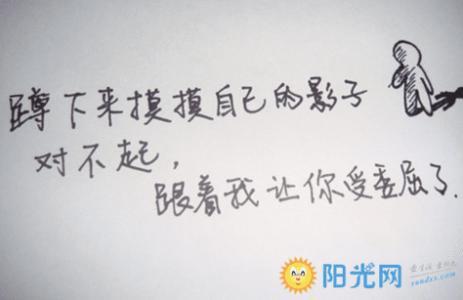 蹲下来摸摸自己的影子
对不起，
跟着我让你受委屈了.
阳光网